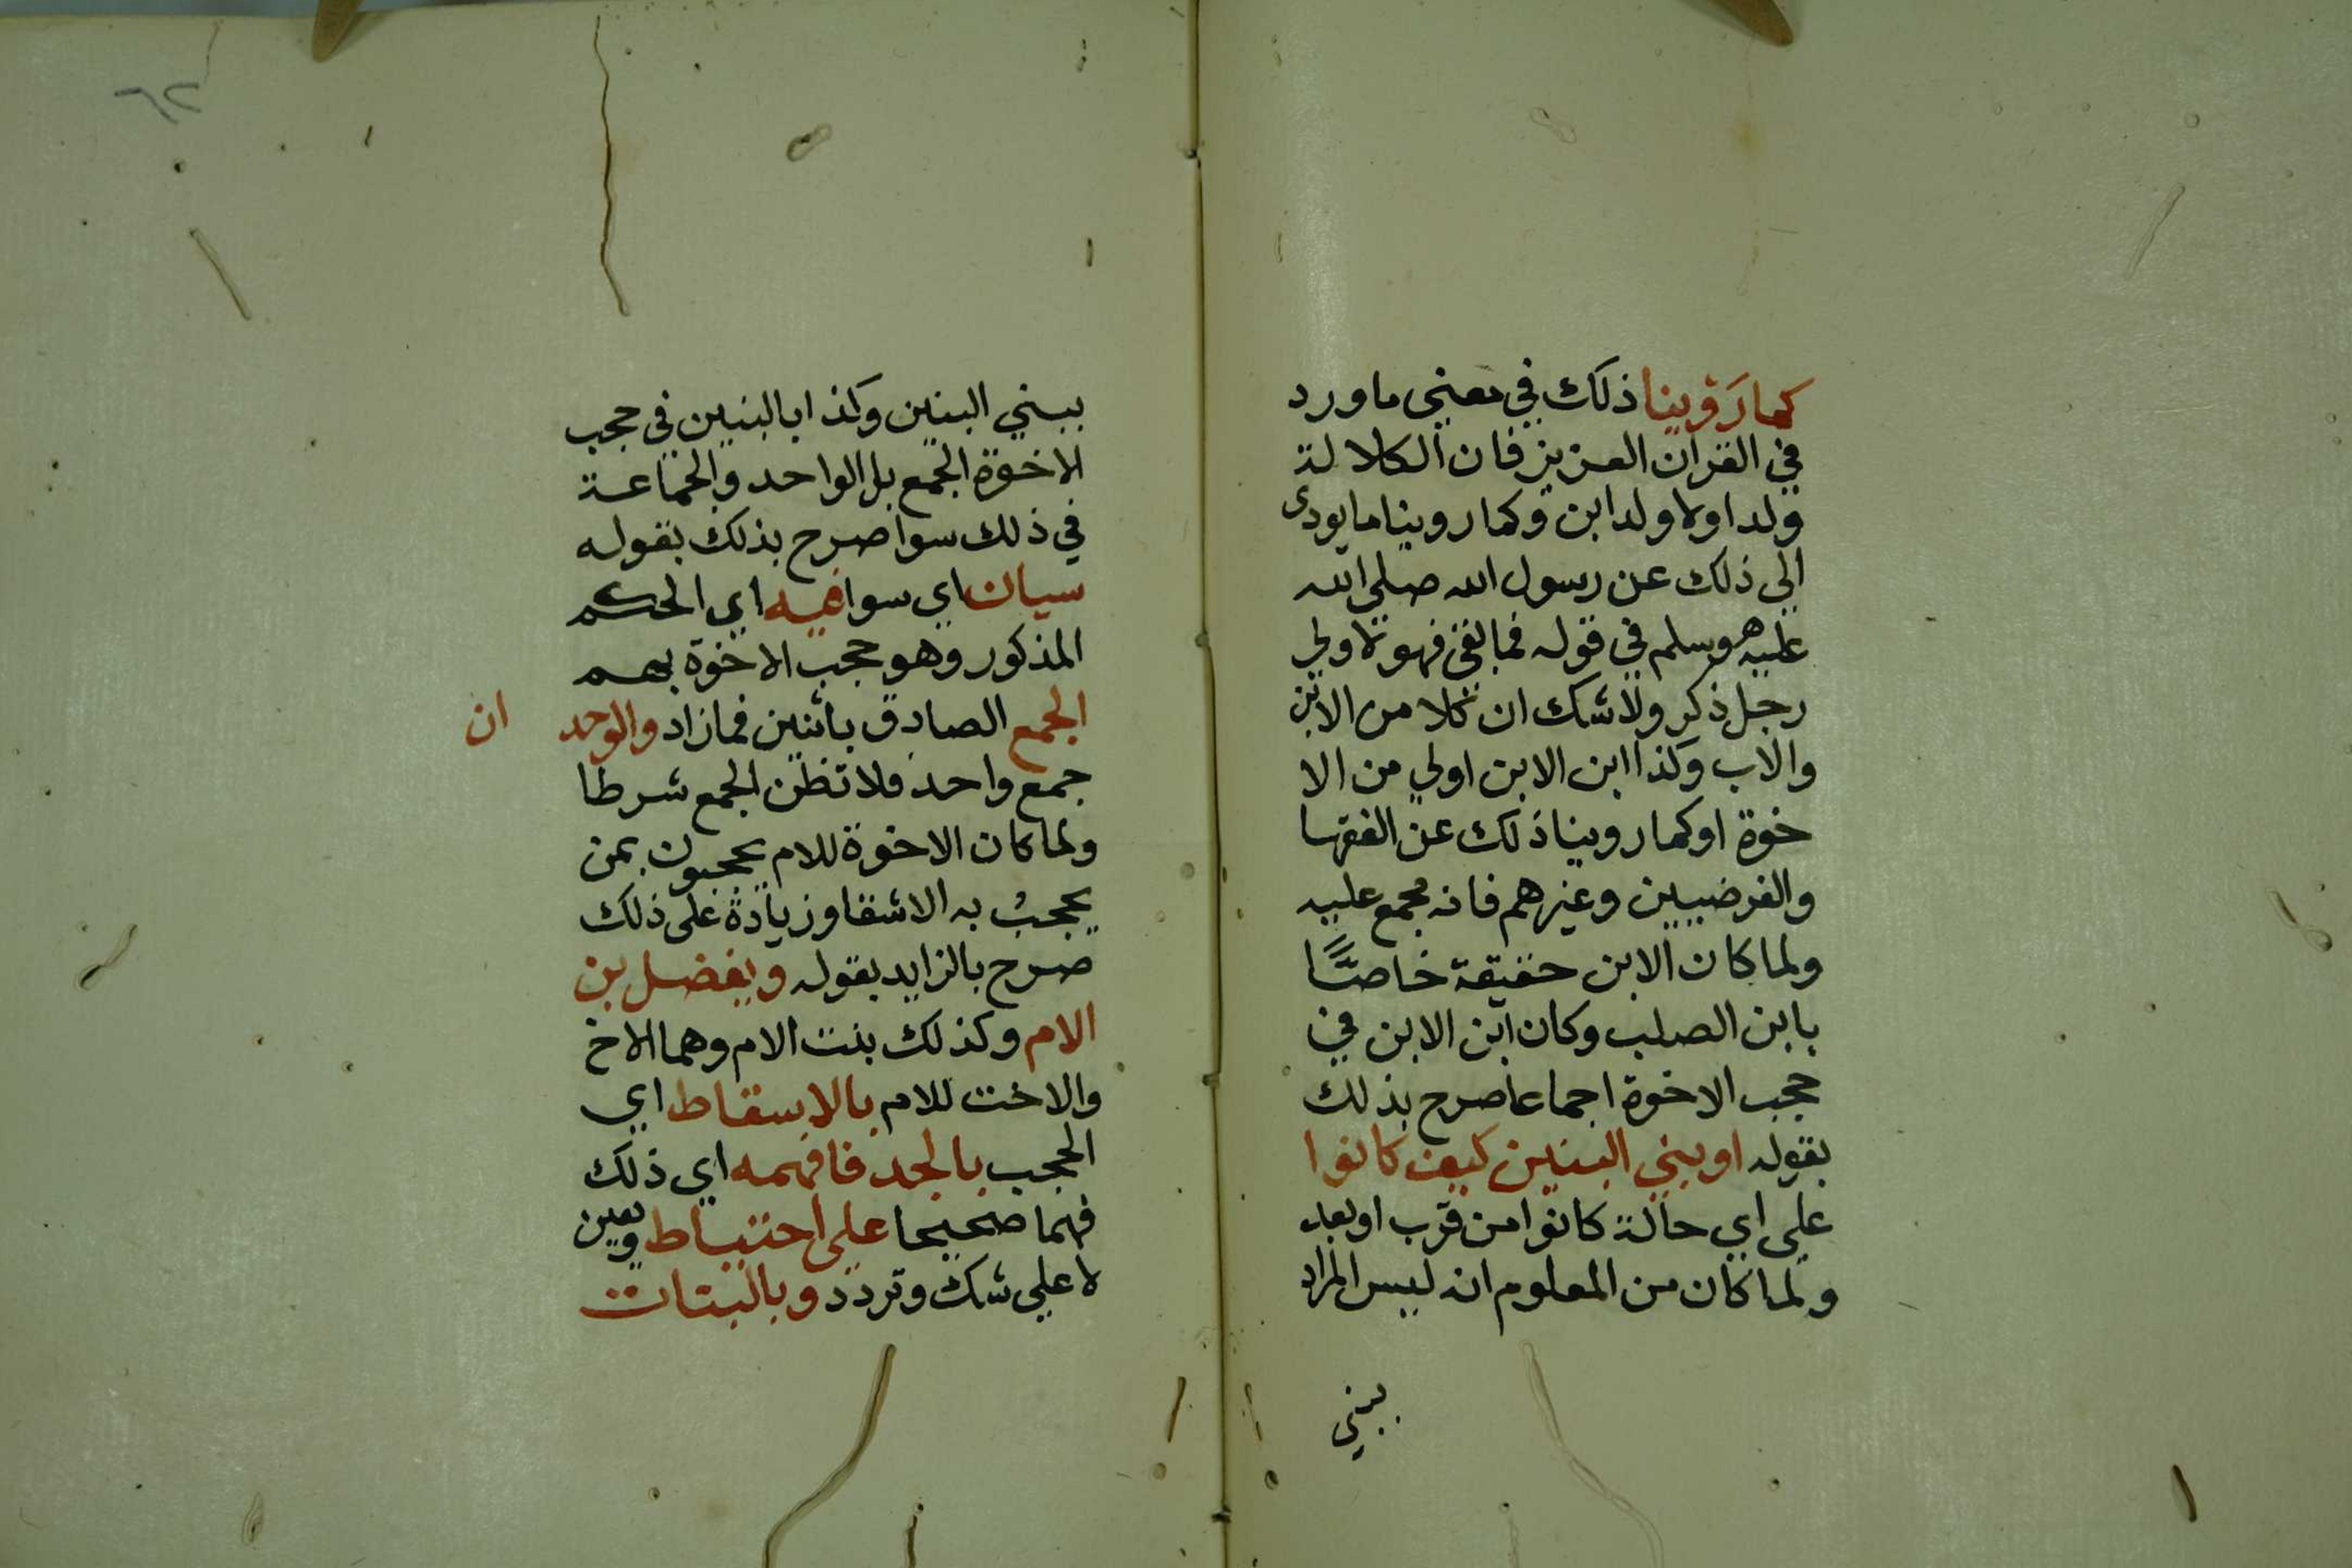 كما رَوَينا ذلك في معني ما ورد
في القران العزيز فان الكلالة
ولد اولاولد ابن وكما روينا ما يودى
الي ذلك عن رسول الله صلي الله
عليه وسلم في قوله فما بقى فهو لاولي
رجل ذكر ولا شك ان كلا من الابن
والاب وكذا ابن الابن اولي من الا
خوة او كما روينا ذلك عن الفقها
والفرضيين وغيرهم فانه مجمع عليه
ولما كان الابن حقيقة خاصًّا
بابن الصلب وكان ابن الابن في
حجب الاخوة اجماعا صرح بذلك
بقوله او بني البنين كيف كانوا
علي اي حالة كانوا من قرب او بعد
ولما كان من المعلوم انه ليس المراد
ببني
٦٢
ببني البنين وكذا بالبنين في حجب
الاخوة الجمع بل الواحد والجماعة
في ذلك سوا صرح بذلك بقوله
سيان اي سوا فيه اي الحكم
المذكور وهو حجب الاخوة بهم
الجمع الصادق باثنين فما زاد والوحد ان
جمع واحد فلا تظن الجمع شرطا
ولما كان الاخوة للام يحجبون بمن
يحجبُ به الاشقا وزيادة على ذلك
صرح بالزايد بقوله ويفضل بن
الام وكذلك بنت الام وهما الاخ
والاخت للام بالاسقاط اي
الحجب بالجد فافهمه اي ذلك
فهما صحيحا علي احتياط ويقين
لا علي شك وتردد وبالبنات